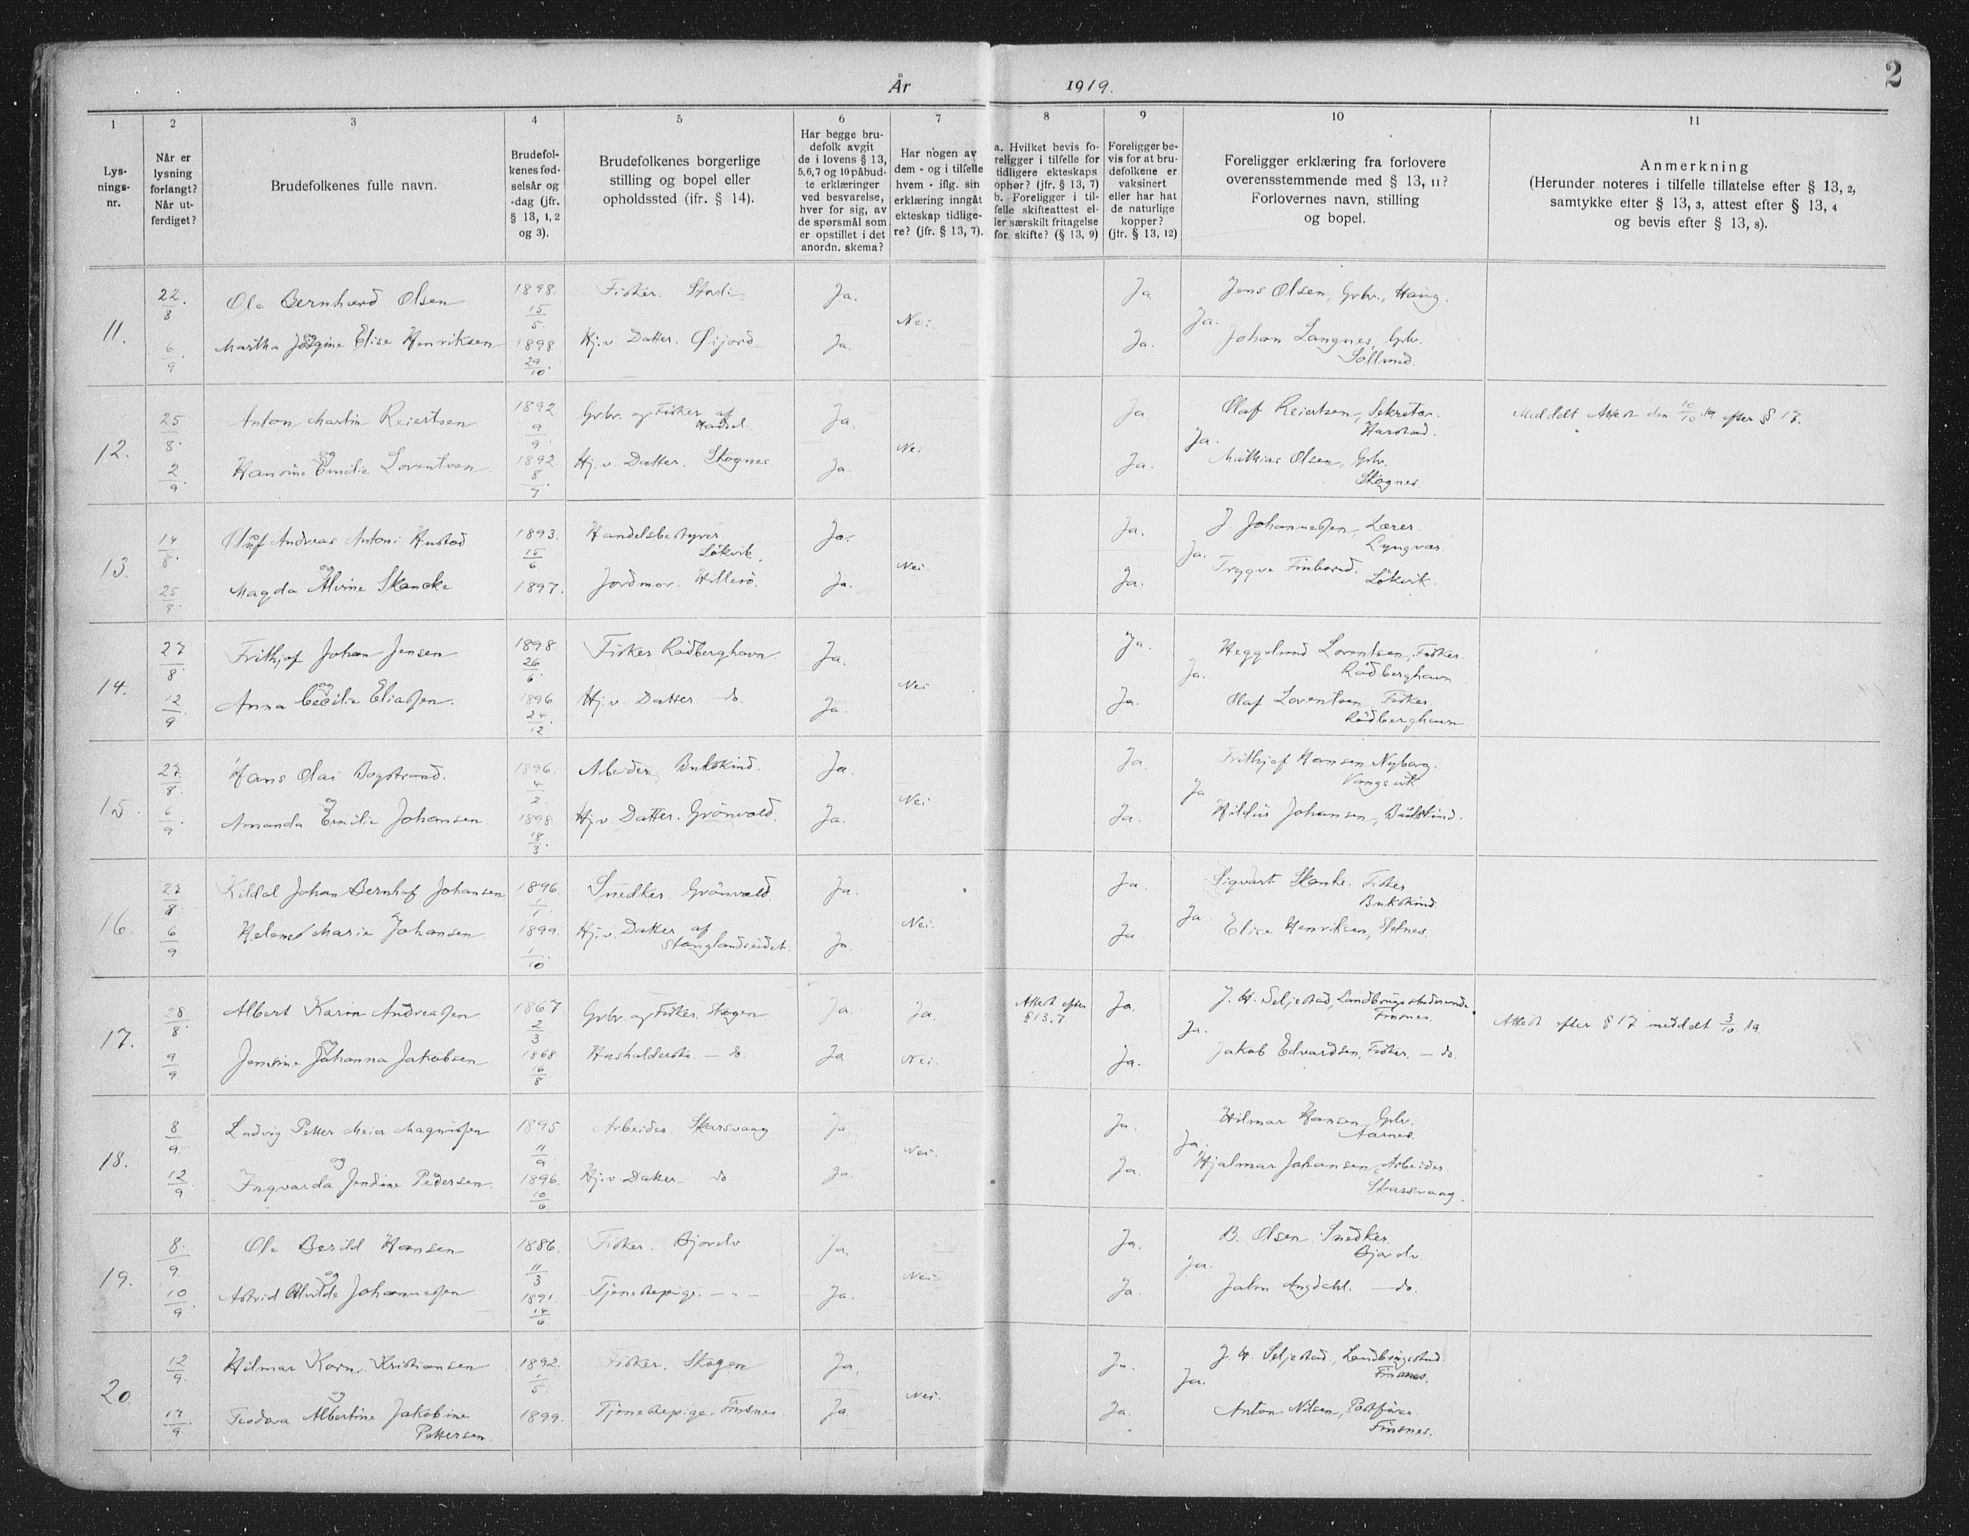 2
År 1919.
1 2 3 4 5 6 7 8 9 10 11
Lys-
nings-
nr.
Når er
lysning
forlangt?
Når ut-
ferdiget?
Brudefolkenes fulle navn.
Brudefol-
kenes fød-
selsår og
-dag (jfr.
§ 13, 1, 2
og 3).
Brudefolkenes borgerlige
stilling og bopel eller
opholdssted (ifr. § 14).
Har begge bru-
defolk avgit
de i lovens § 13,
5,6,7 og 10 påbud-
te erklæringer
ved besvarelse,
hver for sig, av
de spørsmål som
er opstillet i det
anordn. skema?
Har nogen av
dem - og i tilfelle
hvem - iflg. sin
erklæring inngåt
ekteskap tidlige-
re? (jfr. § 13, 7).
a. Hvilket bevis fo-
religger i tilfelle for
tidligere ekteskaps
ophør? (jfr. § 13, 7)
b. Foreligger i til-
felle skifteattest el-
ler særskilt fritagelse
for skifte? (§ 13, 9)
Foreligger be-
vis for at bru-
defolkene er
vaksinert
eller har hat
de naturlige
kopper?
(jfr. § 13, 12)
Foreligger erklæring fra forlovere
overensstemmende med § 13, 11?
Forlovernes navn, stilling
og bopel.
Anmerkning
(Herunder noteres i tilfelle tillatelse efter § 13, 2,
samtykke efter § 13, 3, attest efter § 13, 4
og bevis efter § 13, 8).
11.
22/8 Ole Bernhard Olsen 1898. 15/5. Fisker. Ja. Ja Jens Olsen, Grbr., Haug.
og Nei. Ja.
6/9 Martha Jørgine Elise Henriksen 1898 29/10. Hj.v. Datter. Øijord Ja. Ja. Johan Langnes, Grbr.
Sollund
12.
25/8. Anton Martin Reiertsen 1892 9/9. Grbr. og Fisker af
Hadsel Ja. Ja Olaf Reiertsen, Sekretær.
Harstad. Meddelt Attest den 10/10.19 efter § 17.
og Nei Ja.
2/9 Hansine Emilie Lorentsen 1892. 8/7 Hj.v. Datter. Skognes Ja. Ja. Mathias Olsen, Grbr.
Skognes
13.
14/8. Oluf Andreas Antoni Hustad 1893. 15/6 Handelsbestyrer
Løkvik. Ja. Ja. J. Johannessen, Lærer.
Lyngvær
og Nei. Ja.
25/8. Magda Alvine Skancke 1897. Jordmor. Hillesø. Ja. Ja. Trygve Finborud.
Løkvik.
14.
27/8 Frithjof Johan Jensen 1898. 26/6. Fisker Rødberghavn Ja. Ja. Heggelund Lorentsen, Fisker.
Rødberghavn
og Nei Ja.
12/9 Anna Cecilie Eliassen. 1896 24/12 Hj.v. Datter do. Ja. Ja. Olaf Lorentsen Fisker
Rødberghavn
15.
27/8. Hans Olai Bogstrand. 1896. 4/2. Arbeider, Bukskind. Ja. Ja. Frithjof Hansen Nyborg.
Vangsvik
og Nei Ja
6/9. Amanda Emilie Johansen. 1898 18/3. Hj.v. Datter. Grønvold. Ja. Ja. Johansen, Bukskind.
16.
27/8 Kildal Johan Bernhof Johansen 1896 1/1. Snedker. Grønvold. Ja. Ja. Sigvart Skanke. Fisker
Bukskind.
og Nei. Ja.
6/9 Helene Marie Johansen. 1899. 1/10 Hj.v. Datter af
Stonglandseidet Ja. Ja Elise Henriksen,
17.
28/8. Albert Karin Andreassen 1867 2/3 Grbr. og Fisker. Skogen Ja. Ja. Attest efter
§ 13.7 Ja. J. H. Seljestad, Landbrugsstuderende
Finsnes. Attest efter § 17 meddelt 3/10 19
og Ja.
9/9 Jensine Johanna Jakobsen 1868. 16/8 Husholderske — do. Ja Nei. Ja. Jakob Edvardsen, Fisker. — do.
18.
8/9. Ludvig Petter Meier Magnussen 1895 11/9. Arbeider. Skarsvaag Ja. Ja. Hilmar Hansen, Grbr.
Aarnes.
og Nei. Ja.
12/9. Ingvarda Jensine Pedersen. 1896. 10/6 Hj.v. Datter — do Ja. Ja. Hjalmar Johansen Arbeider
Skarsvaag.
19.
8./9. Ole Berild Hansen 1886. 11/3 Fisker. Gjorelv Ja. Ja. B. Olsen. Snedker
Gjorelv.
og Nei. Ja.
10/9. Astrid Alvilde Johannessen 1891. 14/6 Tjenestepige. — " — Ja. Ja. John Angdahl. — do.
20
12/9. Hilmar Korn. Kristiansen 1892. 1/5. Fisker. Skogen Ja. Ja. J. H. Seljestad, Landbrugsstud.
Finsnes.
og Nei. Ja.
17/9. Teodora Albertine Jakobine
Pettersen. 1899. Tjenestepige. Finsnes Ja Ja. Anton Nilsen, Postfører
Finsnes.